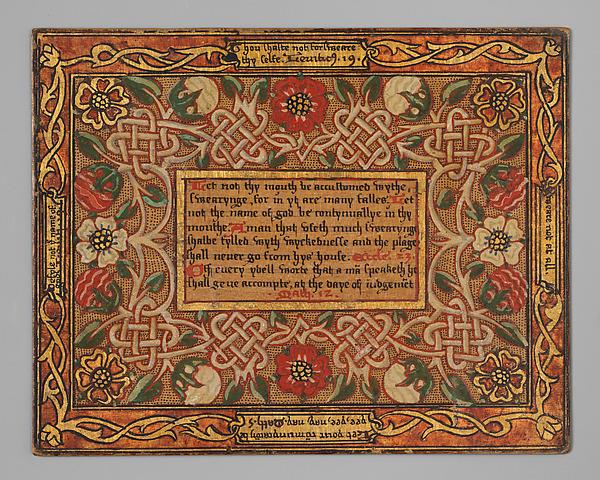 Thou shalte not forsweare
thy selfe. Leuitic9. 19.
Let not thy mouth be accustomed wythe
swearynge, for in yt are many falles. Let
not the name of god be contynuallye in thy
mouthe. A man that vseth much swearyng
shalbe fylled wyth wyckednesse and the plage
shall neuer go from hys house. Eccle. 23.
Of euery ydell worde that a mā speaketh he
shall geue accompte, at the daye of iudgemēt
Math. 12.
Sweare not at all
Let your communycacyō be
yee, yee: nay, nay. Math. 5